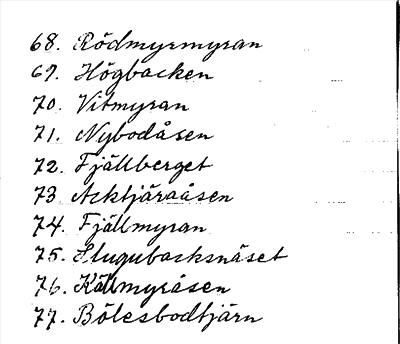 68. Rödmyrmyran
69. Högbacken
70. Vitmyran
71. Nybodåsen
72. Fjällberget
73 Acktjäraåsen
74. Fjällmyran
75. Slugubacksnäset
76. Källmyråsen
77. Bölesbodtjärn